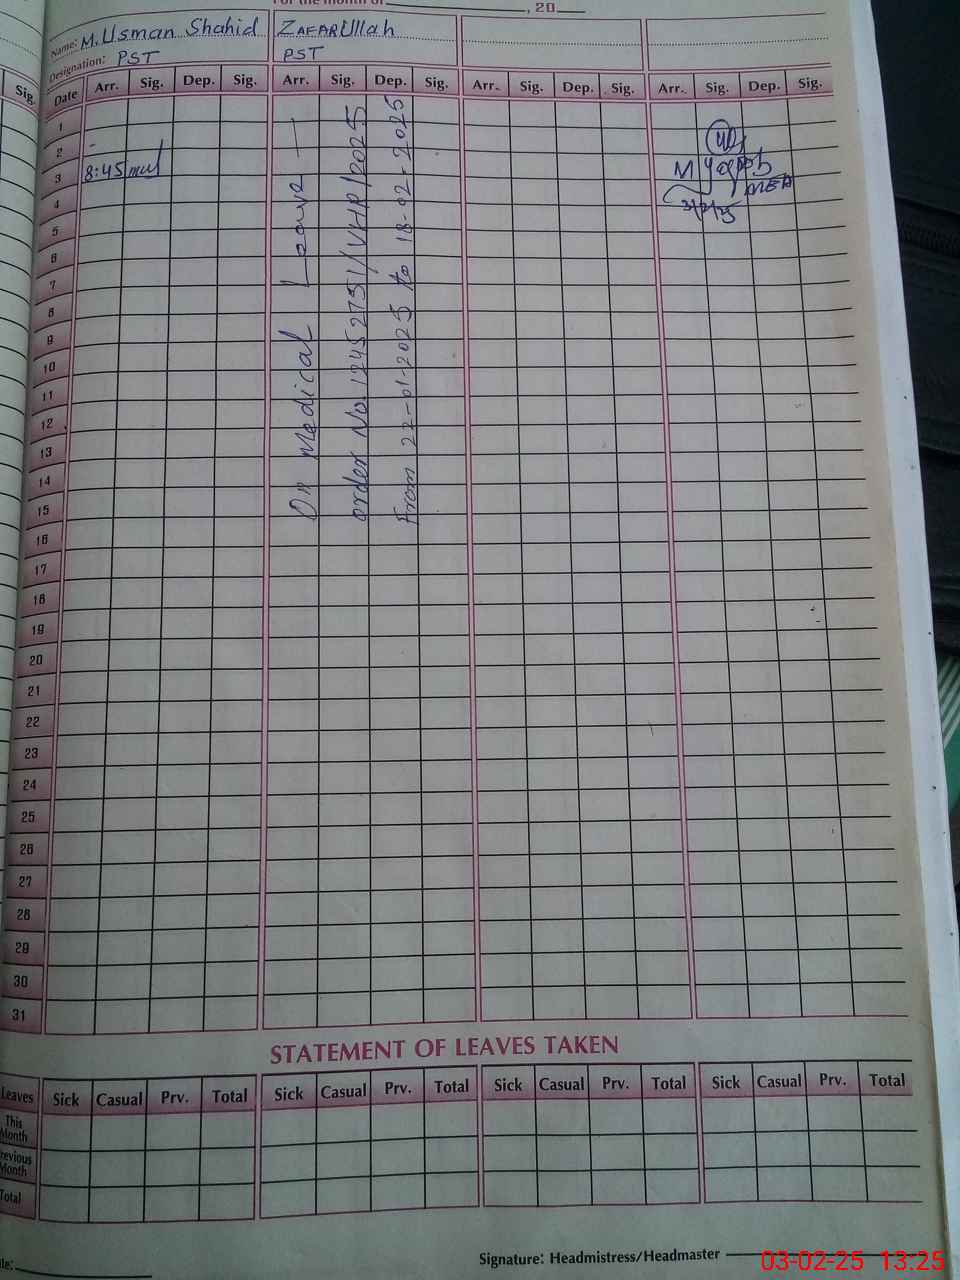 For the month of ________, 20___
Name: M. Usman Shahid ZAFARUllah
Designation: PST PST
Sig. Date Arr. Sig. Dep. Sig. Arr. Sig. Dep. Sig. Arr. Sig. Dep. Sig. Arr. Sig. Dep. Sig.
1
2 -
3 8:45
4
5
6
7
8
9
10
11
12
13
14
15
16
17
18
19
20
21
22
23
24
25
26
27
28
29
30
31
On Medical Leave —
order No. 12452751/VHR/2025
From 22-01-2025 to 18-02-2025
M
3/2/25
STATEMENT OF LEAVES TAKEN
Leaves Sick Casual Prv. Total Sick Casual Prv. Total Sick Casual Prv. Total Sick Casual Prv. Total
This Month
Previous Month
Total
Signature: Headmistress/Headmaster
03-02-25 13:25